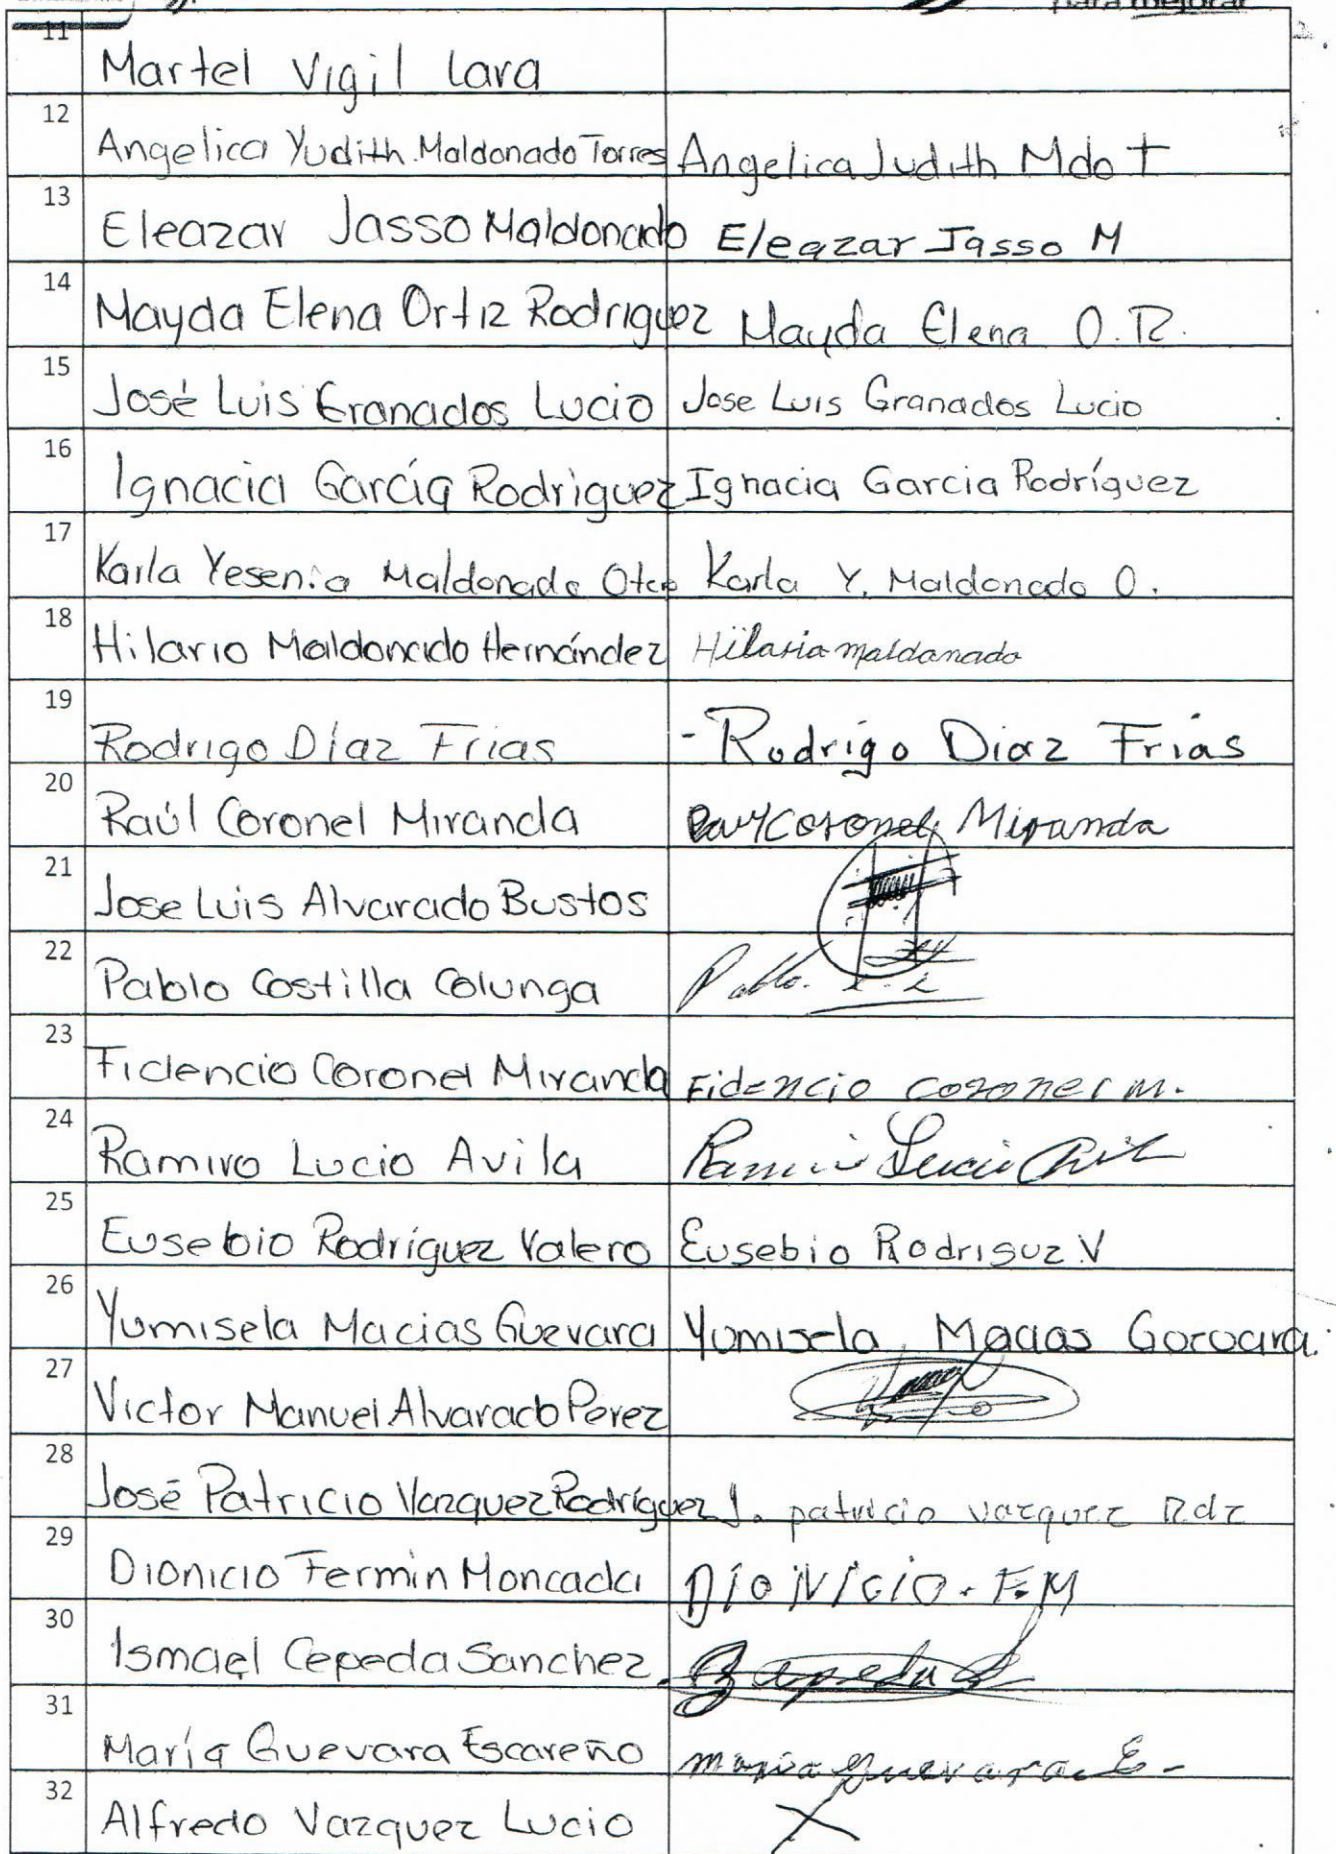 para mejorar
11
Martel Vigil Lara
12
Angelica Yudith Maldonado Torres Angelica Judith Mdo T
13
Eleazar Jasso Maldonado Eleazar Jasso M
14
Mayda Elena Ortiz Rodriguez Mayda Elena O. R.
15
José Luis Granados Lucio Jose Luis Granados Lucio
16
Ignacia García Rodriguez Ignacia Garcia Rodríguez
17
Karla Yesenia Maldonado Karla Y. Maldonado O.
18
Hilario Maldonado Hernández Hilario maldonado
19
Rodrigo Díaz Frias - Rodrigo Diaz Frias
20
Raúl Coronel Miranda Raul Coronel Miranda
21
Jose Luis Alvarado Bustos
22
Pablo Costilla Colunga Pablo.
23
Fidencio Coronel Miranda Fidencio coronel M.
24
Ramiro Lucio Avila Ramiro Lucio Avila
25
Eusebio Rodríguez Valero Eusebio Rodrisuz V
26
Yumisela Macias Guevara Yumisela Macias
27
Victor Manuel Alvarado Perez
28
José Patricio Vazquez Rodríguez J. patricio vazquez Rdz
29
Dionicio Fermin Moncada DIONICIO. F.M
30
Ismael Cepeda Sanchez
31
María Guevara Escareño maria guevara E-
32
Alfredo Vazquez Lucio X